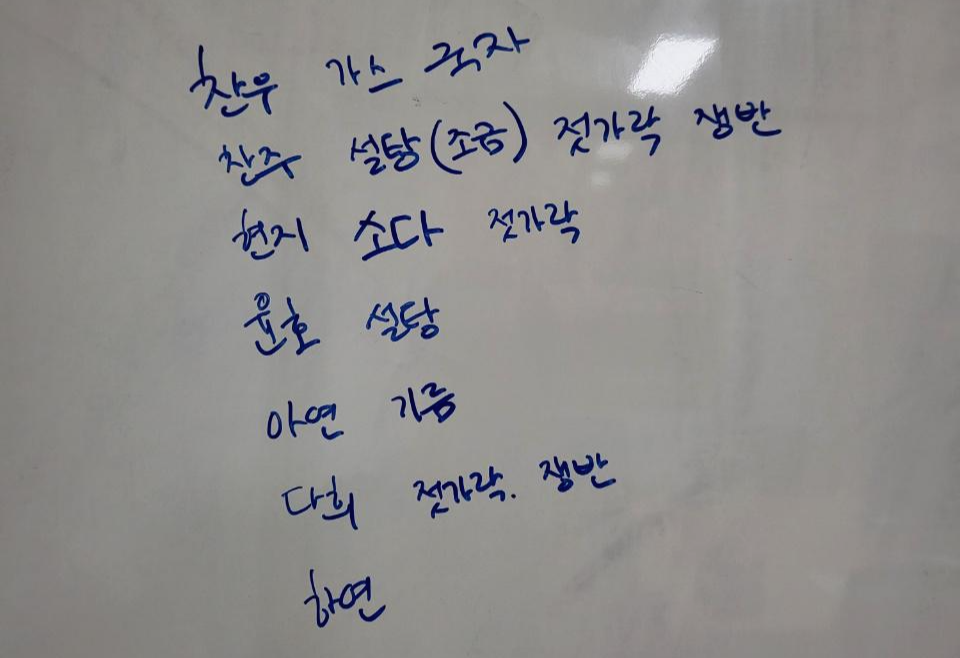 찬우 가스 국자
찬주 설탕(조금) 젓가락 쟁반
현지 소다 젓가락
윤호 설탕
아연 기름
다희 젓가락. 쟁반
하연